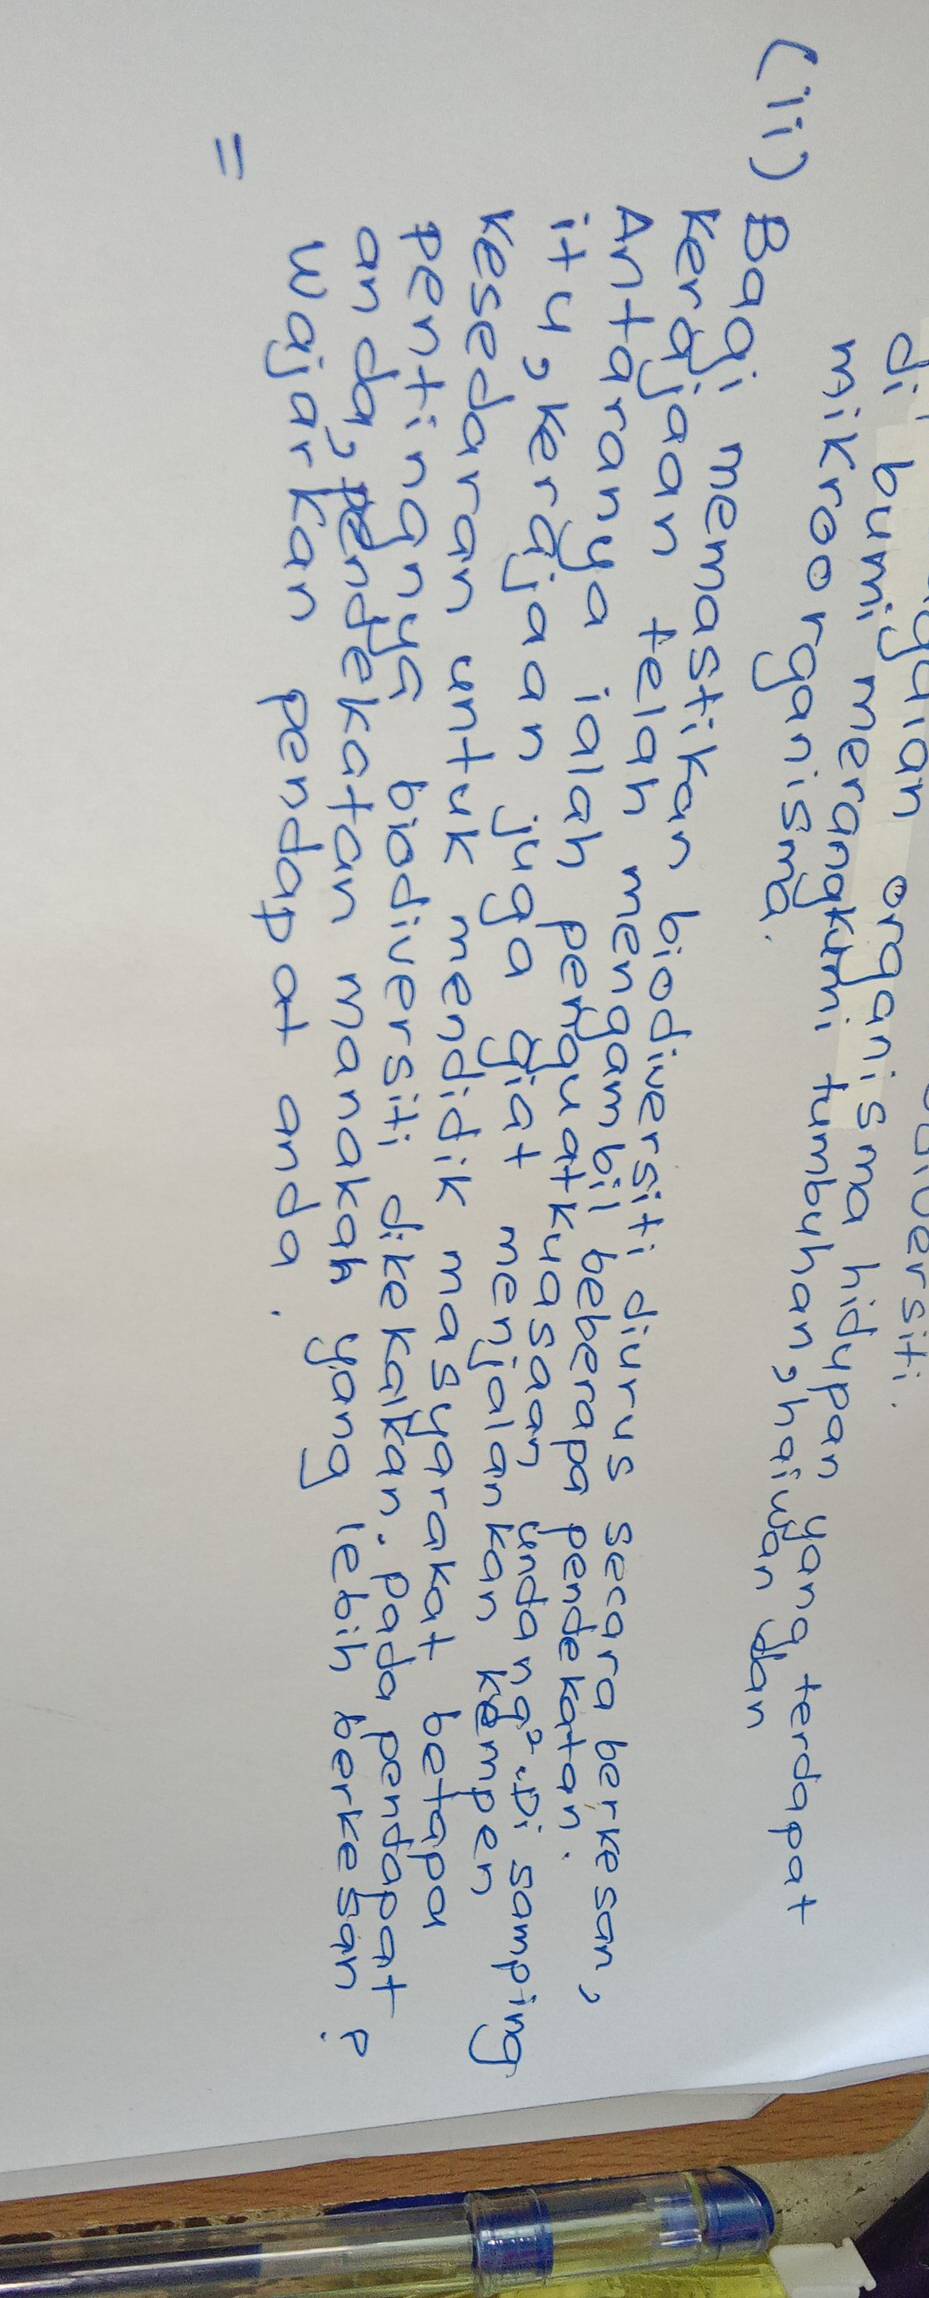 organisma hidupan yang terdapat
di bumi merangkumi tumbuhan, haiwan dan
mikroorganisma.
(ii) Bagi memastikan biodiversiti diurus secara berkesan,
kerajaan telah mengambil beberapa pendekatan.
Antaranya ialah penguatkuasaan undang². Di samping
itu, kerajaan juga giat menjalankan kempen
kesedaran untuk mendidik masyarakat betapa
pentingnya biodiversiti dikekalkan. pada pendapat
anda, pendekatan manakah yang lebih berkesan?
wajarkan pendapat anda.
=